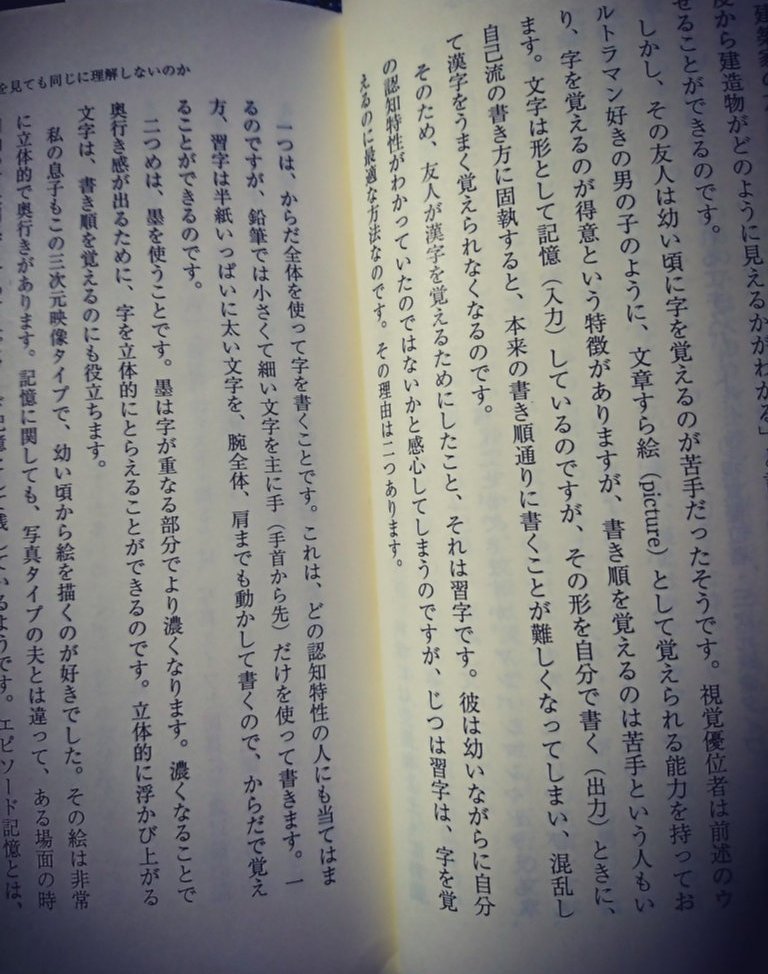 度から建造物がどのように見えるかがわかる」と
せることができるのです。
しかし、その友人は幼い頃に字を覚えるのが苦手だったそうです。視覚優位者は前述のウ
ルトラマン好きの男の子のように、文章すら絵（picture）として覚えられる能力を持ってお
り、字を覚えるのが得意という特徴がありますが、書き順を覚えるのは苦手という人もい
ます。文字は形として記憶（入力）しているのですが、その形を自分で書く（出力）ときに、
自己流の書き方に固執すると、本来の書き順通りに書くことが難しくなってしまい、混乱し
て漢字をうまく覚えられなくなるのです。
そのため、友人が漢字を覚えるためにしたこと、それは習字です。彼は幼いながらに自分
の認知特性がわかっていたのではないかと感心してしまうのですが、じつは習字は、字を覚
えるのに最適な方法なのです。その理由は二つあります。
を見ても同じに理解しないのか
一つは、からだ全体を使って字を書くことです。これは、どの認知特性の人にも当てはま
るのですが、鉛筆では小さくて細い文字を主に手（手首から先）だけを使って書きます。一
方、習字は半紙いっぱいに太い文字を、腕全体、肩までも動かして書くので、からだで覚え
ることができるのです。
二つめは、墨を使うことです。墨は字が重なる部分でより濃くなります。濃くなることで
奥行き感が出るために、字を立体的にとらえることができるのです。立体的に浮かび上がる
文字は、書き順を覚えるのにも役立ちます。
私の息子もこの三次元映像タイプで、幼い頃から絵を描くのが好きでした。その絵は非常
に立体的で奥行きがあります。記憶に関しても、写真タイプの夫とは違って、ある場面の時
記憶として残しているようです。エピソード記憶とは、